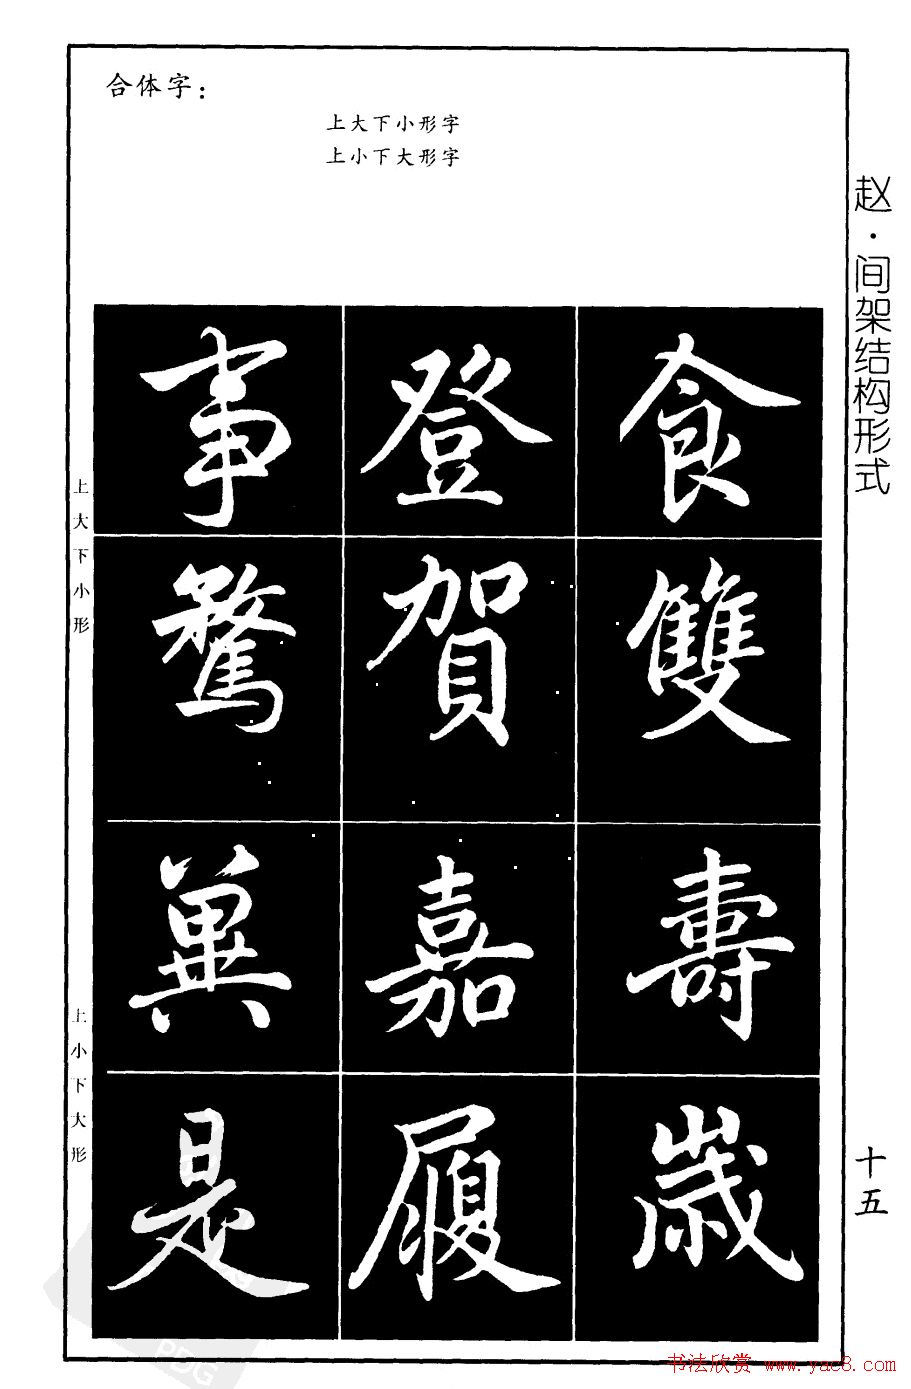 合体字：
上大下小形字
上小下大形字
赵·间架结构形式
上大下小形
事 登 食
賀 雙
上小下大形
嘉 壽
是 履 歳
十五
书法欣赏 www.yac8.com
PDG